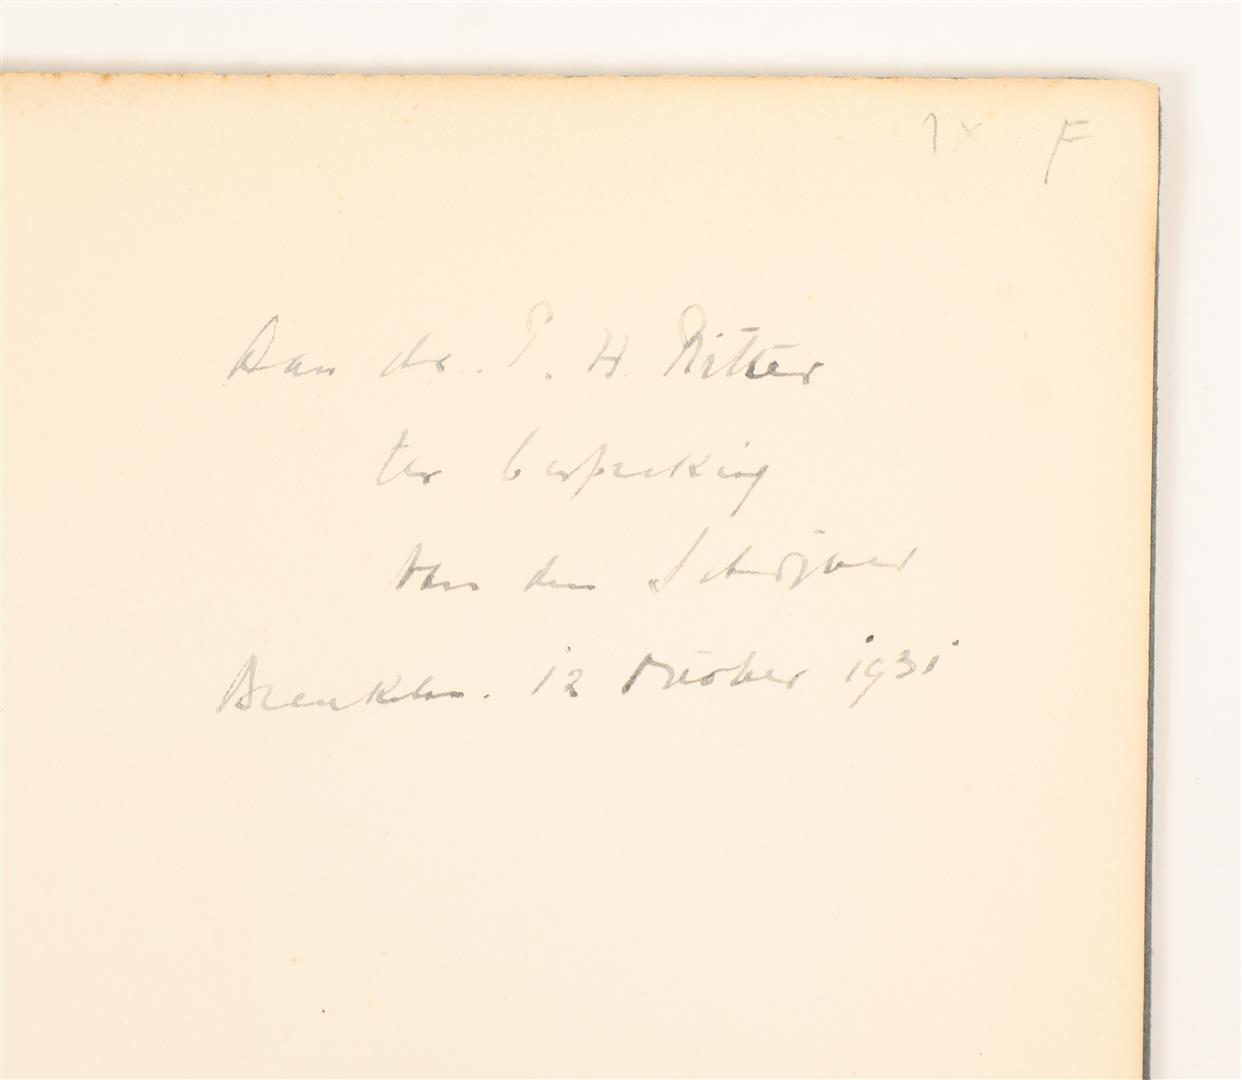 1x F
Aan dr. P. H. Ritter
ter bespreking
van den Schrijver
Breukelen. 12 October 1931